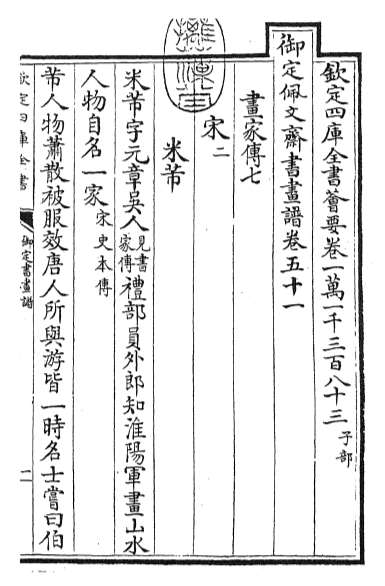 欽定四庫全書薈要卷一萬一千三百八十三子部
御定佩文齋書畫譜卷五十一
畫家傳七
宋二
米芾
米芾字元章吳人見書家傳禮部員外郎知淮陽軍畫山水
人物自名一家宋史本傳
芾人物蕭散被服效唐人所與游皆一時名士嘗曰伯
欽定四庫全書
御定書畫譜